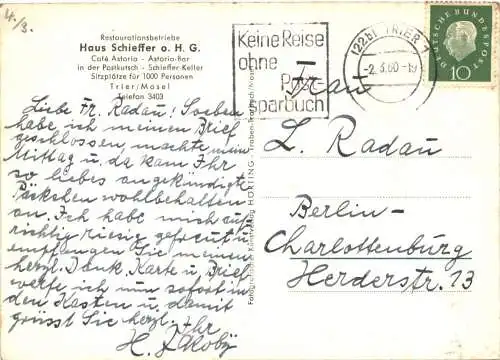 4./3.
Restaurationsbetriebe
Haus Schieffer o. H. G.
Café Astoria - Astoria-Bar
in der Postkutsch - Schieffer-Keller
Sitzplätze für 1000 Personen
Trier/Mosel
Telefon 3403
Liebe Fr. Radau! Soeben
habe ich meinen Brief
geschlossen, machte mein
Mittag u. da kam Ihr
so liebes angekündigte
Päckchen wohlbehalten
an. Ich habe mich auf-
richtig riesig gefreut u.
empfangen Sie meinen
herzl. Dank. Karte u. Brief
werfe ich nun sofort in
den Kasten u. damit
grüsst Sie herzl. Ihr
H. Jakoby
HORTING
Keine Reise
ohne
Post
sparbuch
(22b) TRIER 1
-2.3.60-19
DEUTSCHE BUNDESPOST
10
Frau
L. Radau
Berlin-
Charlottenburg
Herderstr. 13